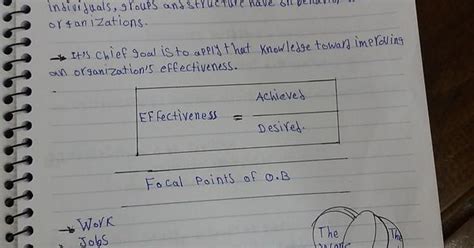 individuals, groups and structure have on behavior
organizations.
→ It's chief goal is to apply that knowledge toward improving
an organization's effectiveness.
Effectiveness = Achieved
Desired.
Focal Points of O.B
→ Work
Jobs
The
The